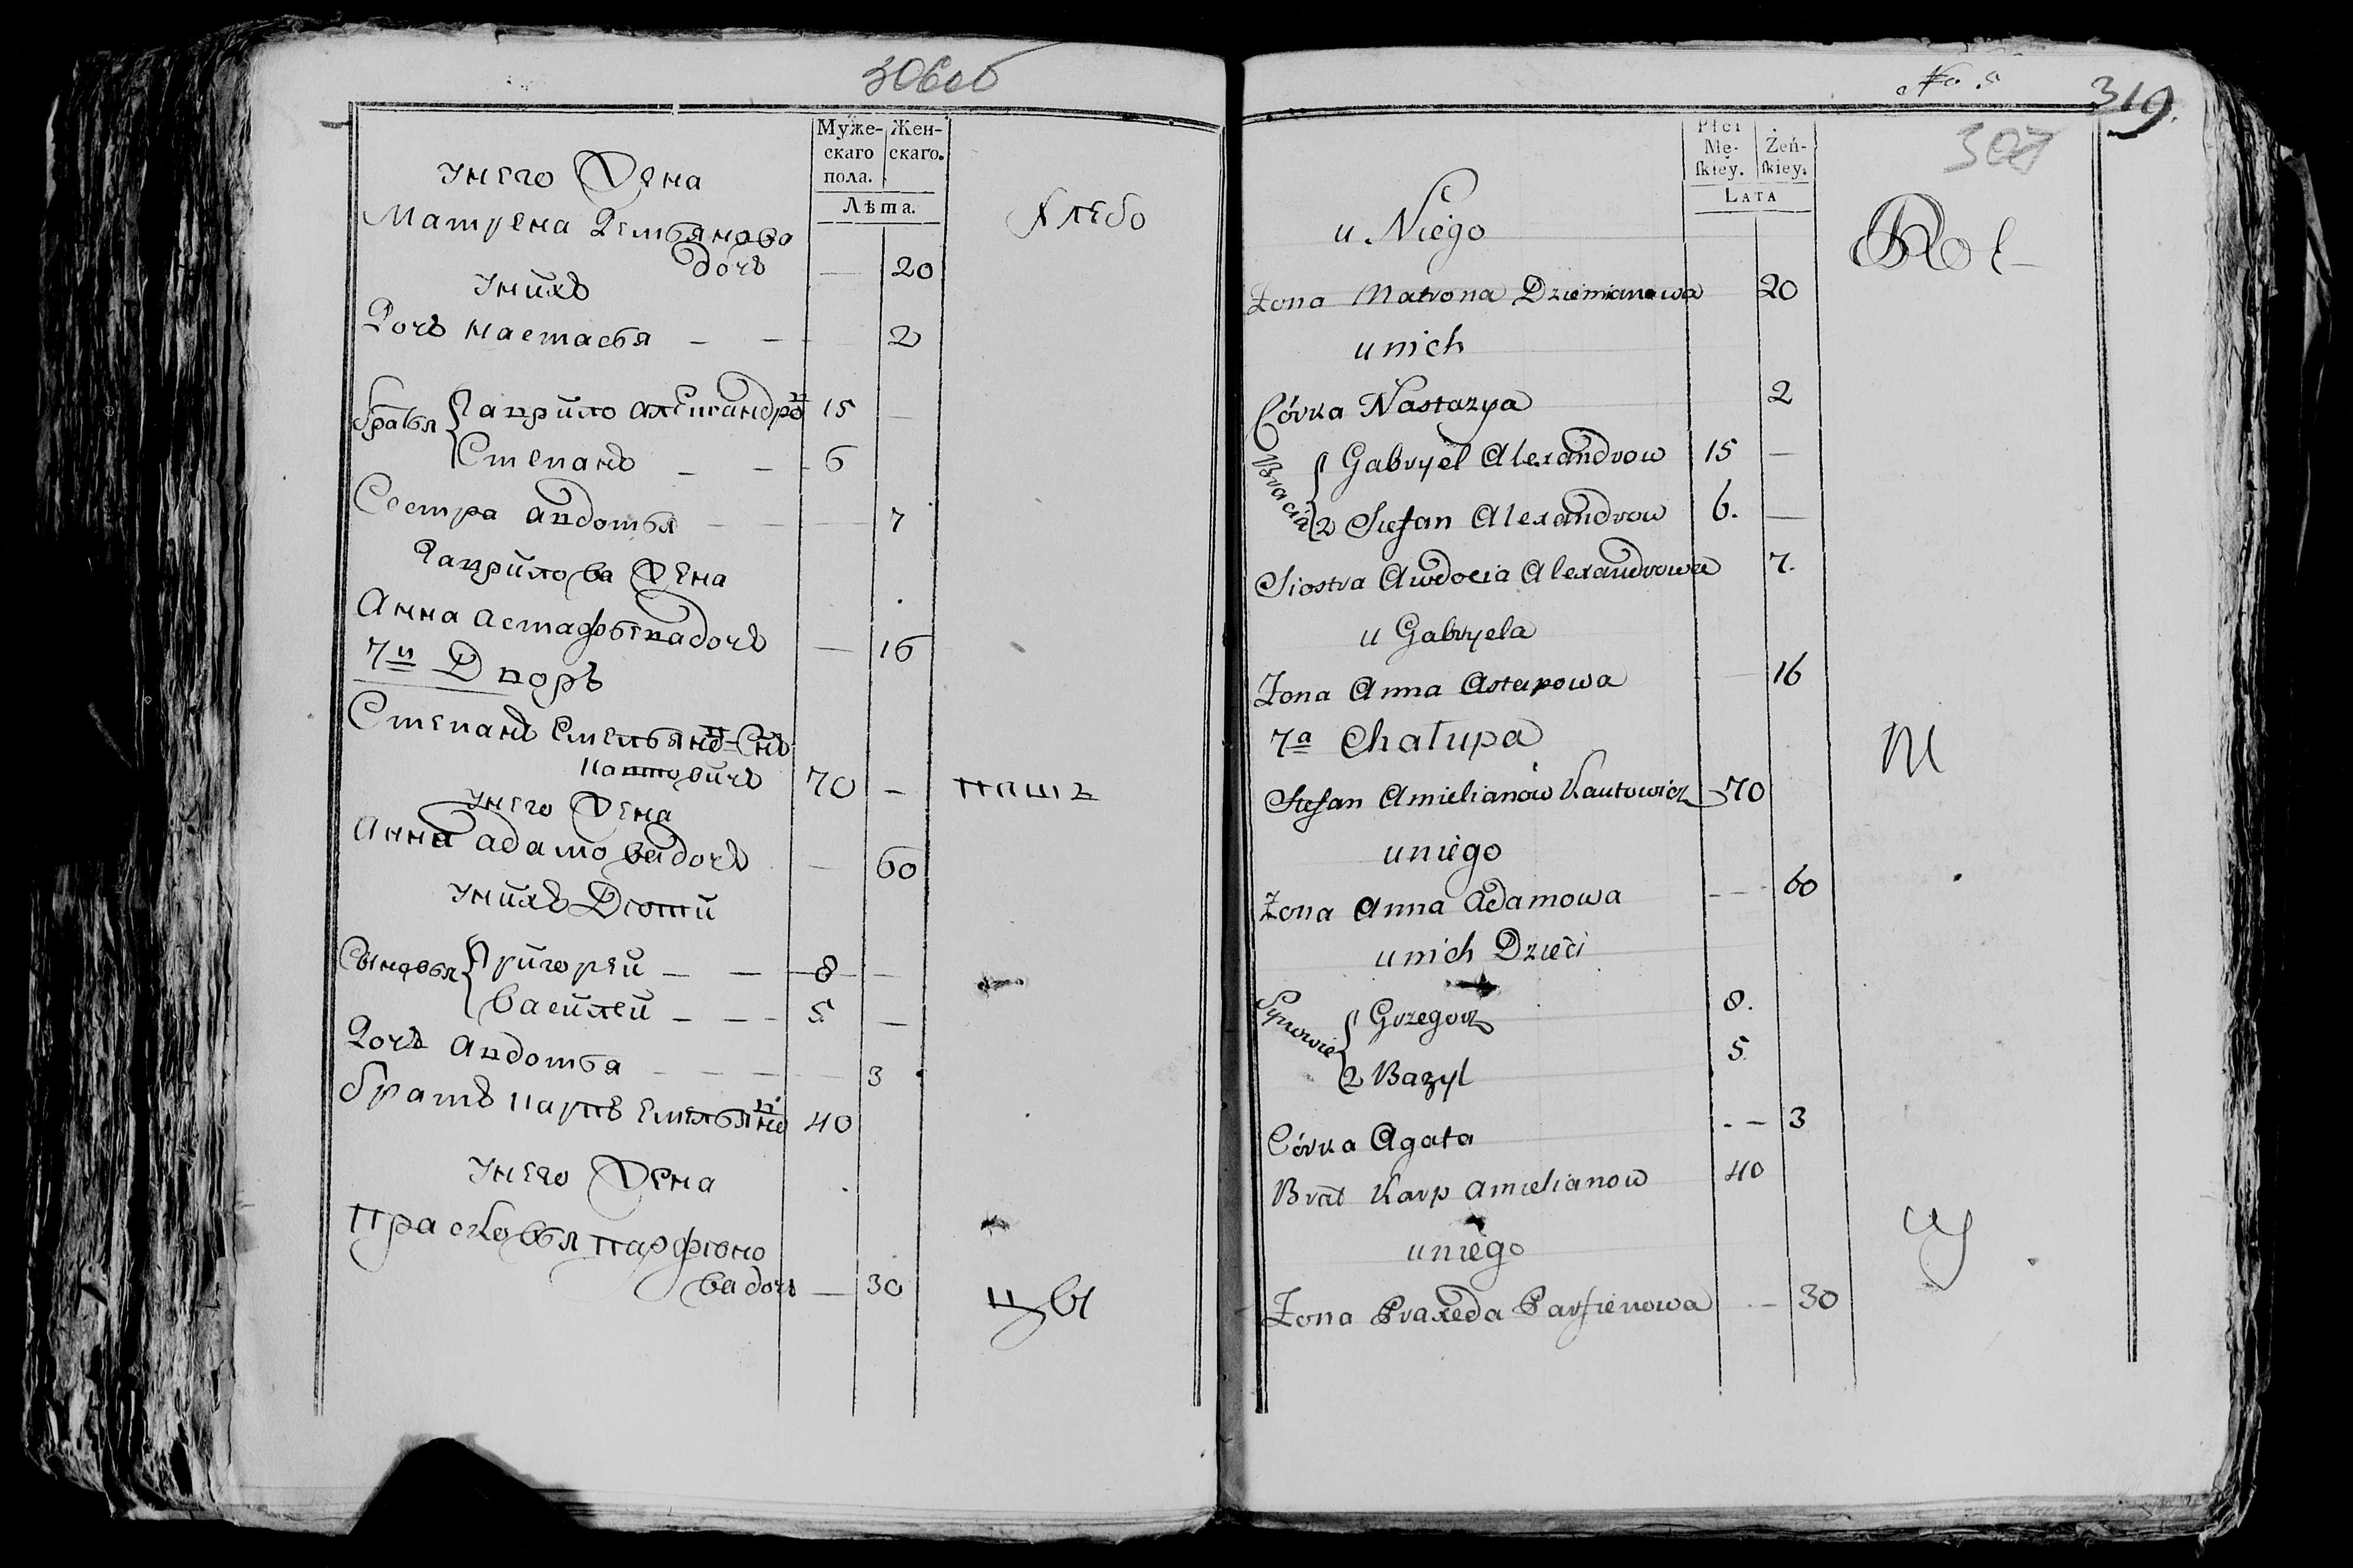 306об
Муже-
скаго
пола.
Жен-
скаго.
Лѣта.
У него Жена
Матрена Демьянова
дочь — 20
У нихъ
Дочь Настасья — — 2
Братья
Гаврило Александровъ 15 —
Степанъ — — 6
Сестра Авдотья — — — 7
Гаврилова Жена
Анна Астафьева дочь — 16
7й Дворъ
Степанъ Емельяновъ Снъ
70 —
У него Жена
Анна Адамова дочь — 60
У нихъ Дѣти
Сыновья
Григорей — — 8 —
Василей — — — 5 —
Дочь Авдотья — — — — 3
Братъ Карпъ Емельяновъ 40
У него Жена
Прасковья Парфіоно
ва дочь — 30
Хлебо
паш
цы
No 5
319.
307
Płci
Mę-
skiey.
Żeń-
skiey.
LATA
u Niego
Żona Matrona Dziemianowa 20
u nich
Córka Nastazya 2
Bracia
1 Gabryel Alexandrow 15 —
2 Stefan Alexandrow 6. —
Siostra Awdocia Alexandrowa 7.
u Gabryela
Żona Anna Astapowa — 16
7a Chałupa
Stefan Amielianow Kautowicz 70
u niego
Żona Anna Adamowa — — 60
u nich Dzieci
Synowie
1 Grzegorz 8.
2 Bazyl 5
Córka Agata - — 3
Brat Karp Amielianow 40
u niego
Żona Praxeda Parfienowa — 30
Rol-
ni
cy